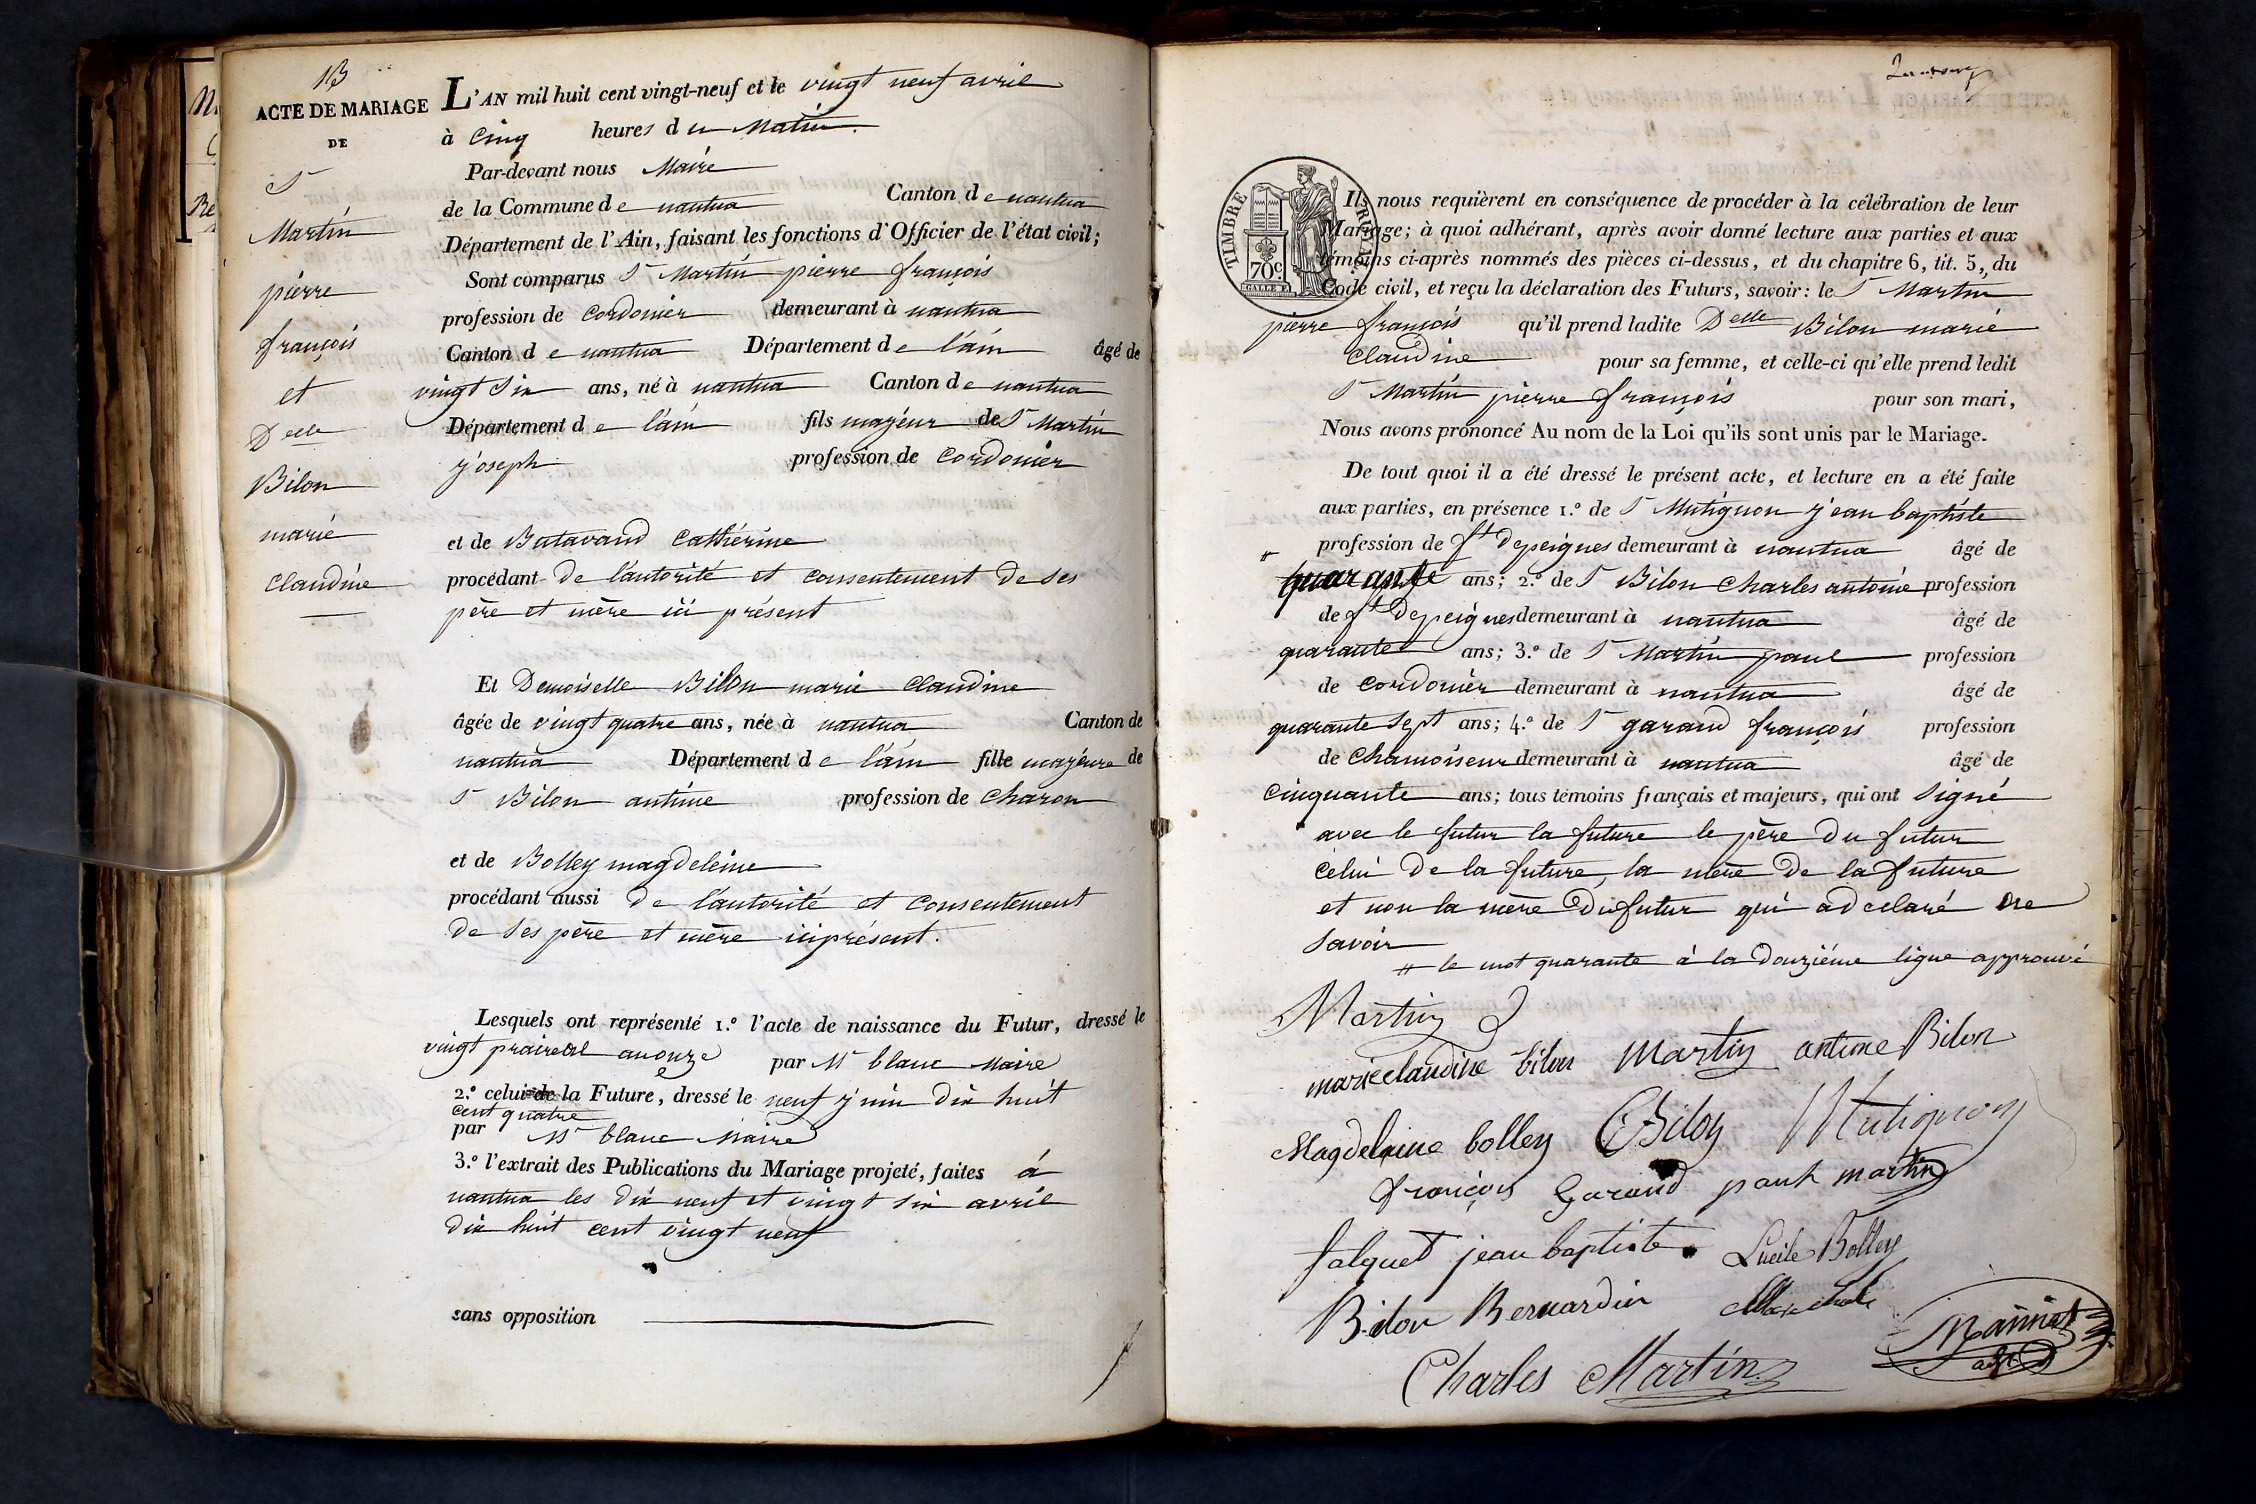 13
ACTE DE MARIAGE
DE
Sr
Martin
pierre
françois
et
Delle
Bilon
marie
claudine
L'AN mil huit cent vingt-neuf et le vingt neuf avril
à cinq heures du Matin.
Par-devant nous Maire
de la Commune de nantua Canton de nantua
Département de l'Ain, faisant les fonctions d'Officier de l'état civil;
Sont comparus Sr Martin pierre françois
profession de Cordonier demeurant à nantua
Canton de nantua Département de l'ain âgé de
vingt Six ans, né à nantua Canton de nantua
Département de l'ain fils majeur de Sr Martin
joseph profession de Cordonier
et de Batavand Cathérine
procédant de l'autorité et consentement de ses
père et mère ici présent
Et Demoiselle Bilon marie claudine
âgée de vingt quatre ans, née à nantua Canton de
nantua Département de l'ain fille majeure de
Sr Bilon antime profession de Charon
et de Bolley magdeleine
procédant aussi de l'autorité et consentement
de Ses père et mère ici présent.
Lesquels ont représenté 1.º l'acte de naissance du Futur, dressé le
vingt praireal an onze par Mr blanc Maire
2.º celui de la Future, dressé le neuf juin dix huit
cent quatre
par Mr blanc Maire
3.º l'extrait des Publications du Mariage projeté, faites à
nantua les dix neuf et vingt six avril
dix huit cent vingt neuf
sans opposition
TIMBRE ROYAL
70c.
Ils nous requièrent en conséquence de procéder à la célébration de leur
Mariage; à quoi adhérant, après avoir donné lecture aux parties et aux
témoins ci-après nommés des pièces ci-dessus, et du chapitre 6, tit. 5, du
Code civil, et reçu la déclaration des Futurs, savoir: le Sr Martin
pierre françois qu'il prend ladite Delle Bilon marie
Claudine pour sa femme, et celle-ci qu'elle prend ledit
Sr Martin pierre françois pour son mari,
Nous avons prononcé Au nom de la Loi qu'ils sont unis par le Mariage.
De tout quoi il a été dressé le présent acte, et lecture en a été faite
aux parties, en présence 1.º de Sr Mutignon jean baptiste
profession de ft depeignes demeurant à nantua âgé de
# quarante ans; 2.º de Sr Bilon Charles antoine profession
de ft depeignes demeurant à nantua âgé de
quarante ans; 3.º de Sr Martin paul profession
de cordonier demeurant à nantua âgé de
quarante Sept ans; 4.º de Sr garand françois profession
de Chamoiseur demeurant à nantua âgé de
cinquante ans; tous témoins français et majeurs, qui ont Signé
avec le futur la future le père du futur
celui de la future, la mère de la future
et non la mère du futur qui a declaré ne
Savoir
# le mot quarante à la douzième ligne approuvé
Martin
marie claudine bilon Martin antime Bilon
Magdelaine bolley CBilon Mutignon
françois Garand paul martin
falquet jean baptiste Lucile Bolley
Bilon Bernardin
Charles Martin